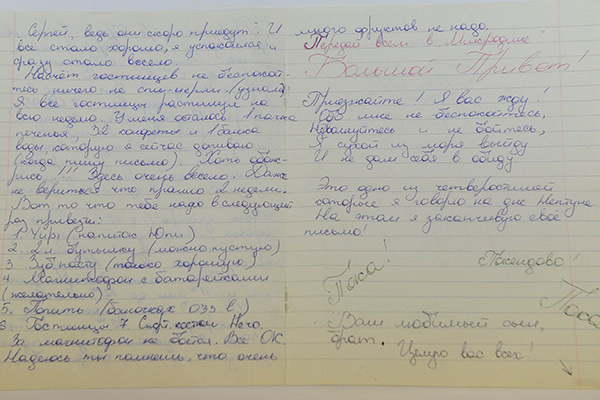 Сергей, ведь они скоро приедут". И
всё стало хорошо, я успокоилась и
сразу стало весело.
Насчёт гостинцев не беспокой-
тесь, ничего не спи-мерли. (узнали)
Я все гостинцы растянул на
всю неделю. У меня осталось 1 пачка
печенья. 32 конфеты и 1 банка
воды, которую я сейчас допиваю
(когда пишу письмо). Хоть обож-
рись!!! Здесь очень весело. Даже
не вериться что прошло 2 недели.
Вот то что тебе надо в следующей
раз привезти:
1. Yupi (напиток Юпи)
2. 2л бутылку (можно пустую)
3. Зуб. пасту (только хорошую)
4. Магнитофон с батарейками
(желательно)
5. Попить (баночках 0,33 л)
6. Гостинцы 7. Спорт. костюм
За магнитофон не бойтся. Всё ОК.
Надеюсь ты помнешь, что очень
много фруктов не надо.
Передай всем в
Большой Привет!
Приезжайте! Я вас жду!
Обо мне не беспокойтесь,
Неволнуйтесь и не бойтесь,
Я сухой из моря выйду
И не дам себя в обиду
Это одно из четверостишей
которые я говорю на дне Нептуна
На этом я заканчиваю своё
письмо!
Пока!
Ваш любимый сын,
брат. Целую вас всех!